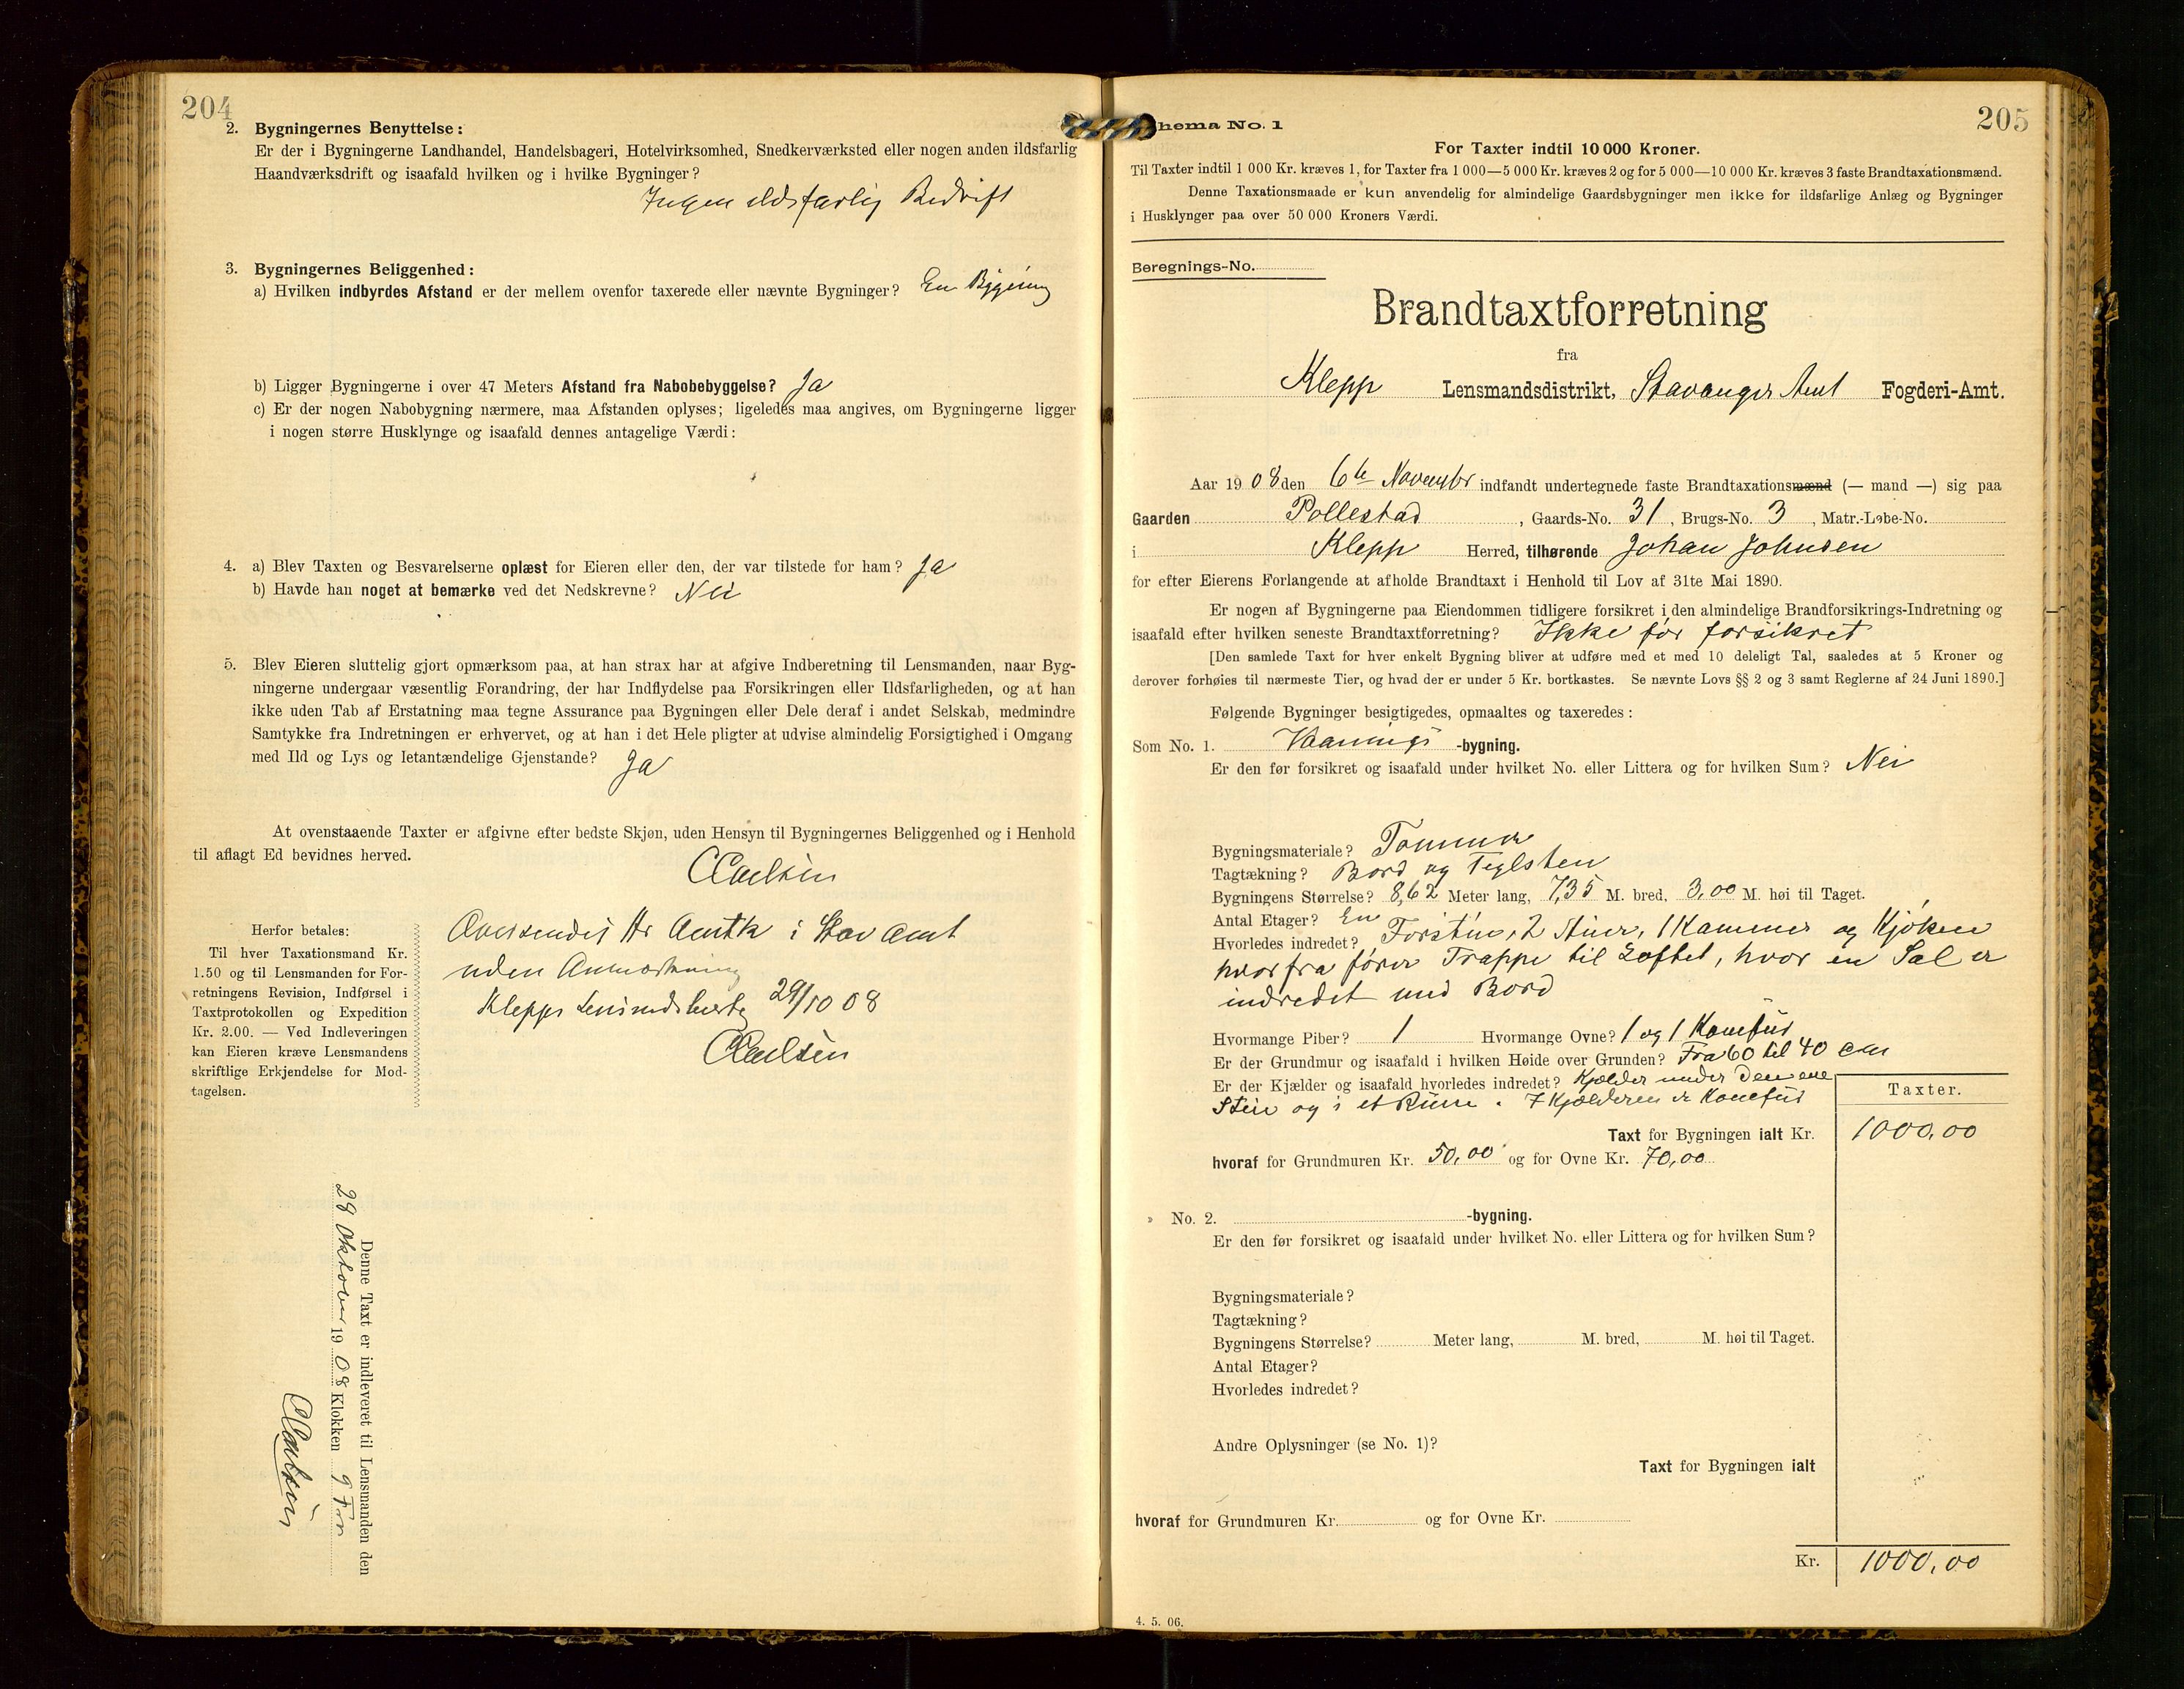 204
2. Bygningernes Benyttelse:
Er der i Bygningerne Landhandel, Handelsbageri, Hotelvirksomhed, Snedkerværksted eller nogen anden ildsfarlig
Haandværksdrift og isaafald hvilken og i hvilke Bygninger?
Ingen ildsfarlig Bedrift
3. Bygningernes Beliggenhed:
a) Hvilken indbyrdes Afstand er der mellem ovenfor taxerede eller nævnte Bygninger? En Bygning
b) Ligger Bygningerne i over 47 Meters Afstand fra Nabobebyggelse? Ja
c) Er der nogen Nabobygning nærmere, maa Afstanden oplyses; ligeledes maa angives, om Bygningerne ligger
i nogen større Husklynge og isaafald dennes antagelige Værdi:
4. a) Blev Taxten og Besvarelserne oplæst for Eieren eller den, der var tilstede for ham? Ja
b) Havde han noget at bemærke ved det Nedskrevne? Nei
5. Blev Eieren sluttelig gjort opmærksom paa, at han strax har at afgive Indberetning til Lensmanden, naar Byg-
ningerne undergaar væsentlig Forandring, der har Indflydelse paa Forsikringen eller Ildsfarligheden, og at han
ikke uden Tab af Erstatning maa tegne Assurance paa Bygningen eller Dele deraf i andet Selskab, medmindre
Samtykke fra Indretningen er erhvervet, og at han i det Hele pligter at udvise almindelig Forsigtighed i Omgang
med Ild og Lys og letantændelige Gjenstande? Ja
At ovenstaaende Taxter er afgivne efter bedste Skjøn, uden Hensyn til Bygningernes Beliggenhed og i Henhold
til aflagt Ed bevidnes herved.
Herfor betales:
Til hver Taxationsmand Kr.
1.50 og til Lensmanden for For-
retningens Revision, Indførsel i
Taxtprotokollen og Expedition
Kr. 2.00. — Ved Indleveringen
kan Eieren kræve Lensmandens
skriftlige Erkjendelse for Mod-
tagelsen.
Oversendes Hr i Stav Amt
uden Anmærkning
Klepps 29/10 08
Denne Taxt er indleveret til Lensmanden den
28 Oktober 1908 Klokken 9 For
205
hema No. 1
For Taxter indtil 10 000 Kroner.
Til Taxter indtil 1 000 Kr. kræves 1, for Taxter fra 1 000—5 000 Kr. kræves 2 og for 5 000—10 000 Kr. kræves 3 faste Brandtaxationsmænd.
Denne Taxationsmaade er kun anvendelig for almindelige Gaardsbygninger men ikke for ildsfarlige Anlæg og Bygninger
i Husklynger paa over 50 000 Kroners Værdi.
Beregnings-No.
Brandtaxtforretning
fra
Klepp Lensmandsdistrikt, Stavanger Amt Fogderi-Amt.
Aar 1908 den 6te November indfandt undertegnede faste Brandtaxationsmænd (— mand —) sig paa
Gaarden Pollestad, Gaards-No. 31, Brugs-No. 3, Matr.-Løbe-No.
i Klepp Herred, tilhørende Johan Johnsen
for efter Eierens Forlangende at afholde Brandtaxt i Henhold til Lov af 31te Mai 1890.
Er nogen af Bygningerne paa Eiendommen tidligere forsikret i den almindelige Brandforsikrings-Indretning og
isaafald efter hvilken seneste Brandtaxtforretning? Ikke før forsikret
[Den samlede Taxt for hver enkelt Bygning bliver at udføre med et med 10 deleligt Tal, saaledes at 5 Kroner og
derover forhøies til nærmeste Tier, og hvad der er under 5 Kr. bortkastes. Se nævnte Lovs §§ 2 og 3 samt Reglerne af 24 Juni 1890.]
Følgende Bygninger besigtigedes, opmaaltes og taxeredes:
Som No. 1. Vaanings-bygning.
Er den før forsikret og isaafald under hvilket No. eller Littera og for hvilken Sum? Nei
Bygningsmateriale? Tømmer
Tagtækning? Bord og Teglsten
Bygningens Størrelse? 8,62 Meter lang, 7,35 M. bred, 3,00 M. høi til Taget.
Antal Etager? En
Hvorledes indredet? Forstue, 2 Stuer, 1 Kammer og Kjøken
hvorfra fører Trappe til Loftet, hvor en Sal er
indredet med Bord
Hvormange Piber? 1 Hvormange Ovne? 1 og 1 Konefur
Er der Grundmur og isaafald i hvilken Høide over Grunden? Fra 60 til 40 cm
Er der Kjælder og isaafald hvorledes indredet? Kjelder under den ene
og i et. I Kjælderen er Konefur
Taxter.
Taxt for Bygningen ialt Kr. 1000,00
hvoraf for Grundmuren Kr. 50,00 og for Ovne Kr. 70,00
» No. 2. -bygning.
Er den før forsikret og isaafald under hvilket No. eller Littera og for hvilken Sum?
Bygningsmateriale?
Tagtækning?
Bygningens Størrelse? Meter lang, M. bred, M. høi til Taget.
Antal Etager?
Hvorledes indredet?
Andre Oplysninger (se No. 1)?
Taxt for Bygningen ialt
hvoraf for Grundmuren Kr. og for Ovne Kr.
Kr. 1000,00
4. 5. 06.